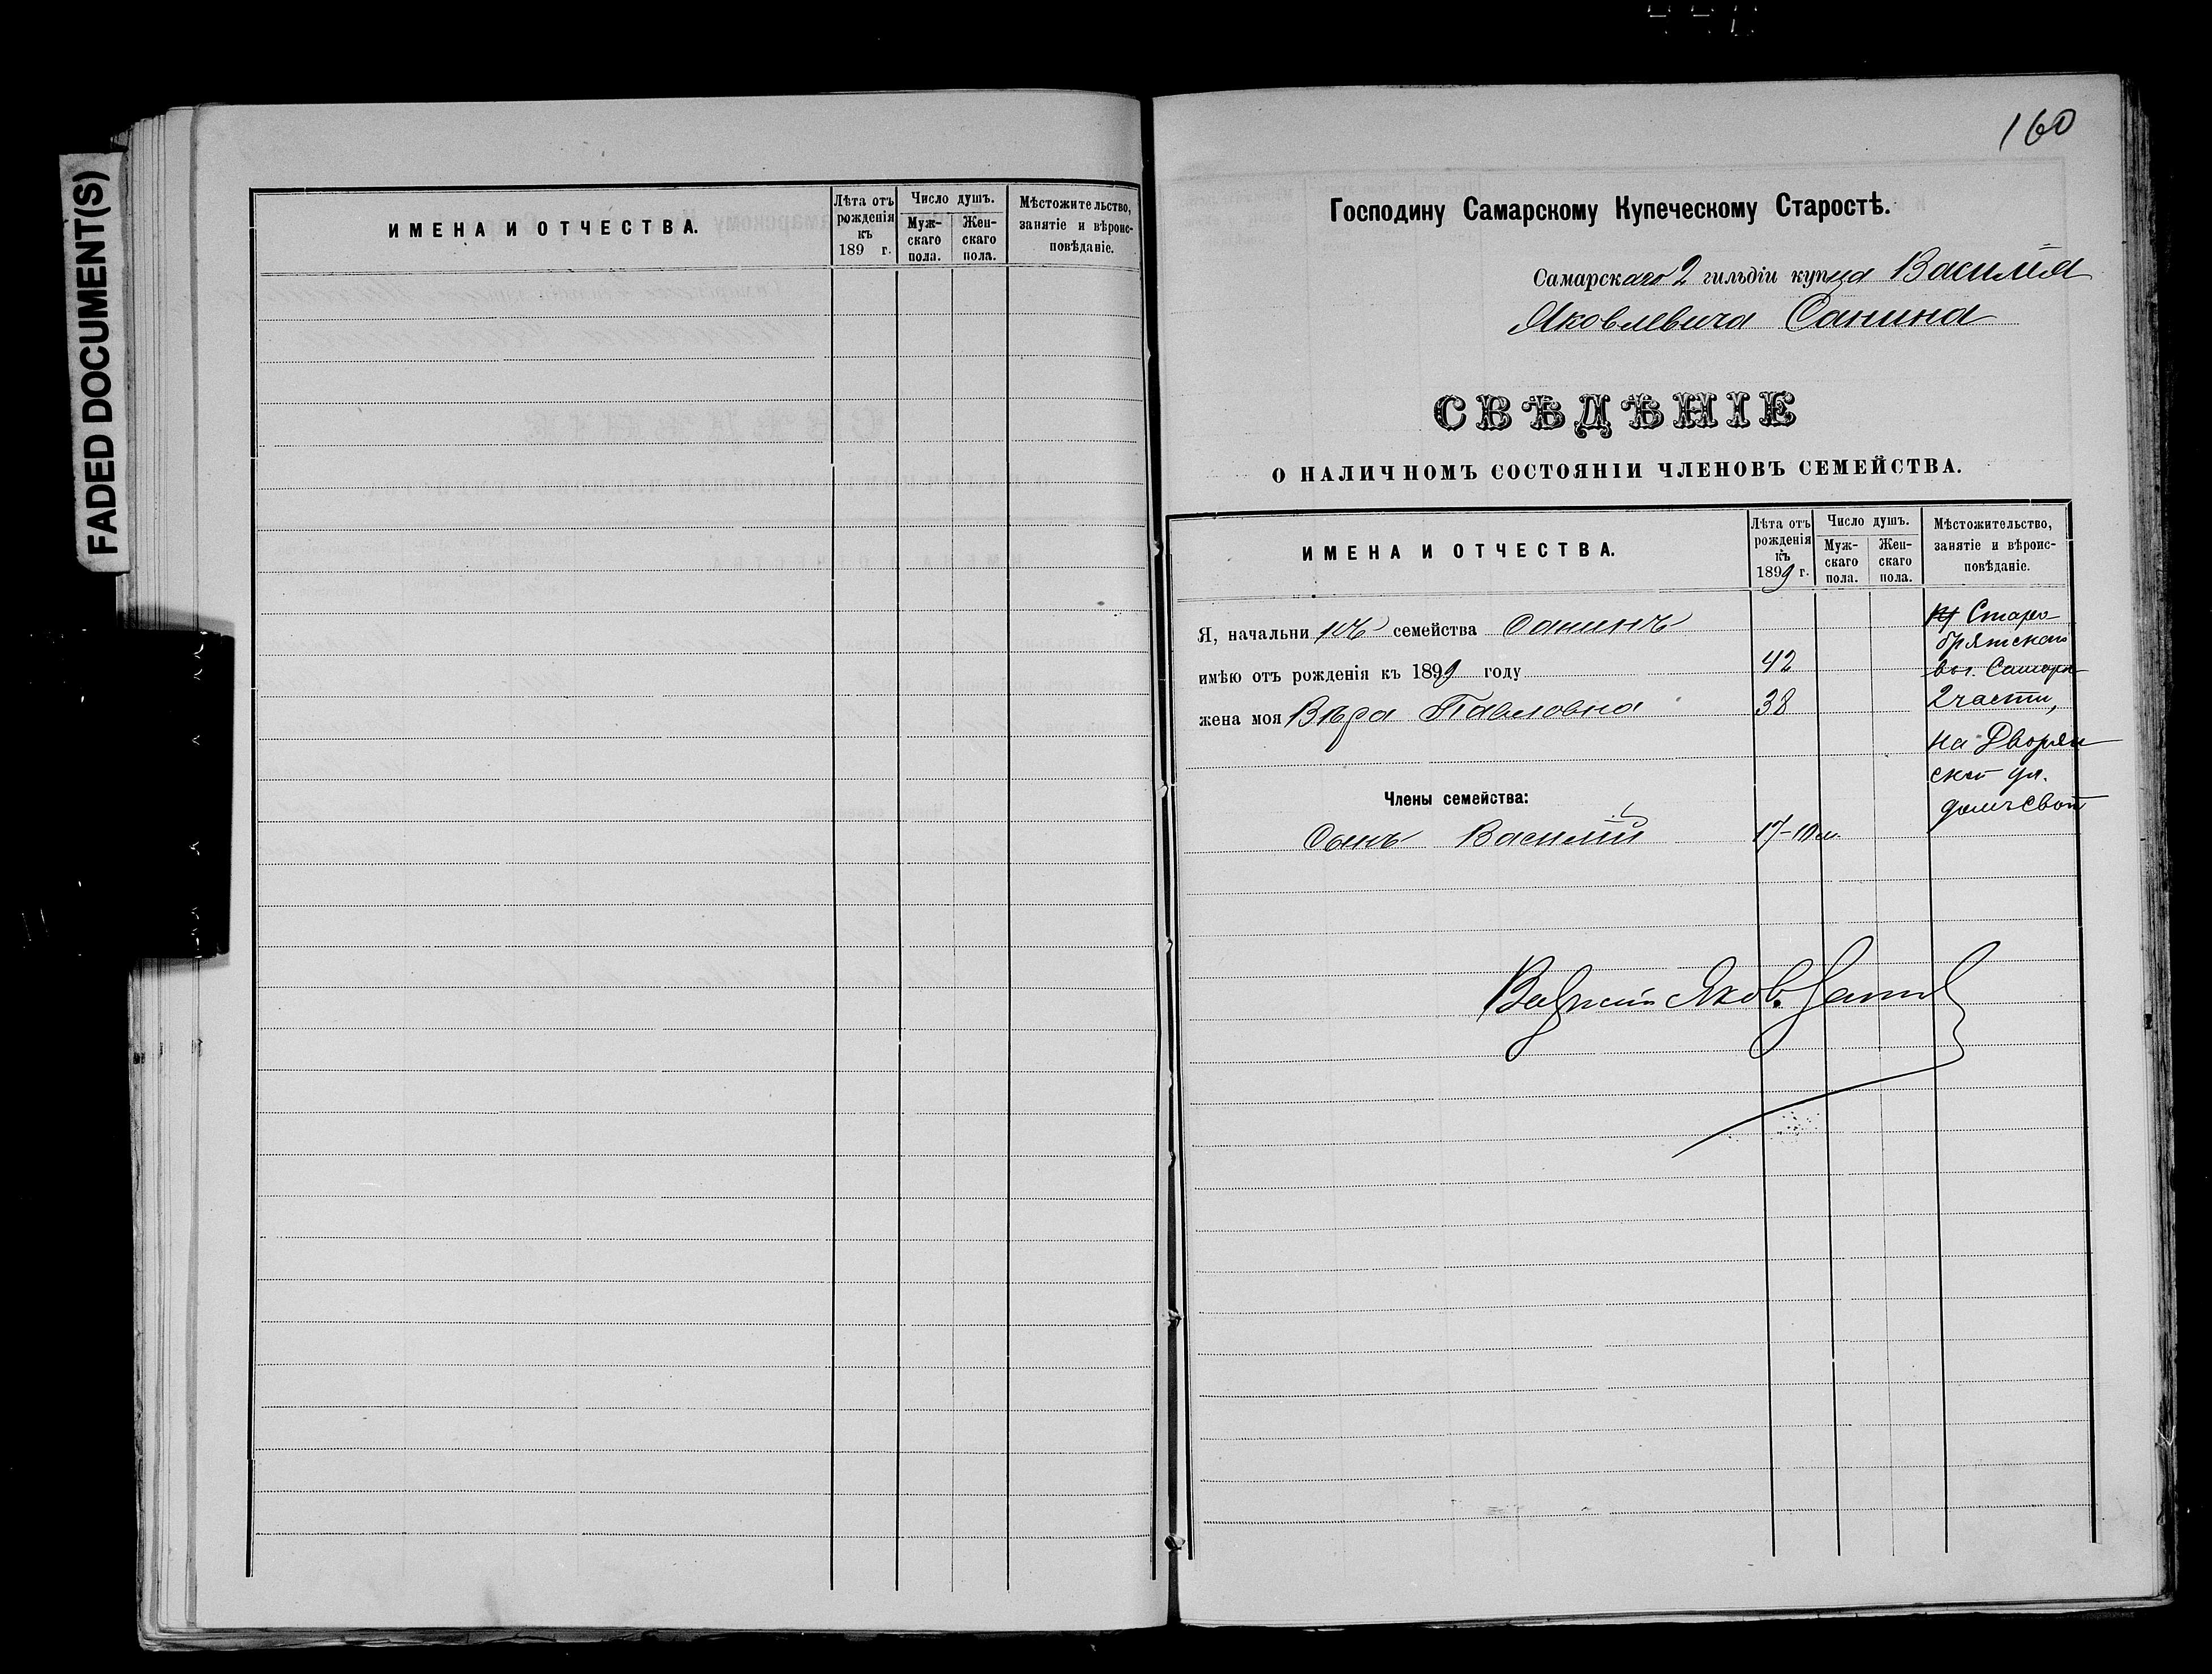 FADED DOCUMENT(S)
ИМЕНА И ОТЧЕСТВА.
Лѣта отъ рожденія къ 189 г.
Число душъ.
Муж-скаго пола.
Жен-скаго пола.
Мѣстожительство, занятіе и вѣроис-повѣданіе.
160
Господину Самарскому Купеческому Старостѣ.
Самарскаго 2 гильдіи купца Василія
Яковлевича Санина
СВѢДѢНІЕ
О НАЛИЧНОМЪ СОСТОЯНІИ ЧЛЕНОВЪ СЕМЕЙСТВА.
ИМЕНА И ОТЧЕСТВА.
Лѣта отъ рожденія къ 1899 г.
Число душъ.
Муж-скаго пола.
Жен-скаго пола.
Мѣстожительство, занятіе и вѣроис-повѣданіе.
Я, начальникъ семейства Санинъ
имѣю отъ рожденія къ 1899 году 42
жена моя Вѣра Павловна 38
Члены семейства:
Сынъ Василій 17-10 м.
2 части,
на Дворян
ской ул.
домъ свой
Василій Яков. Санин